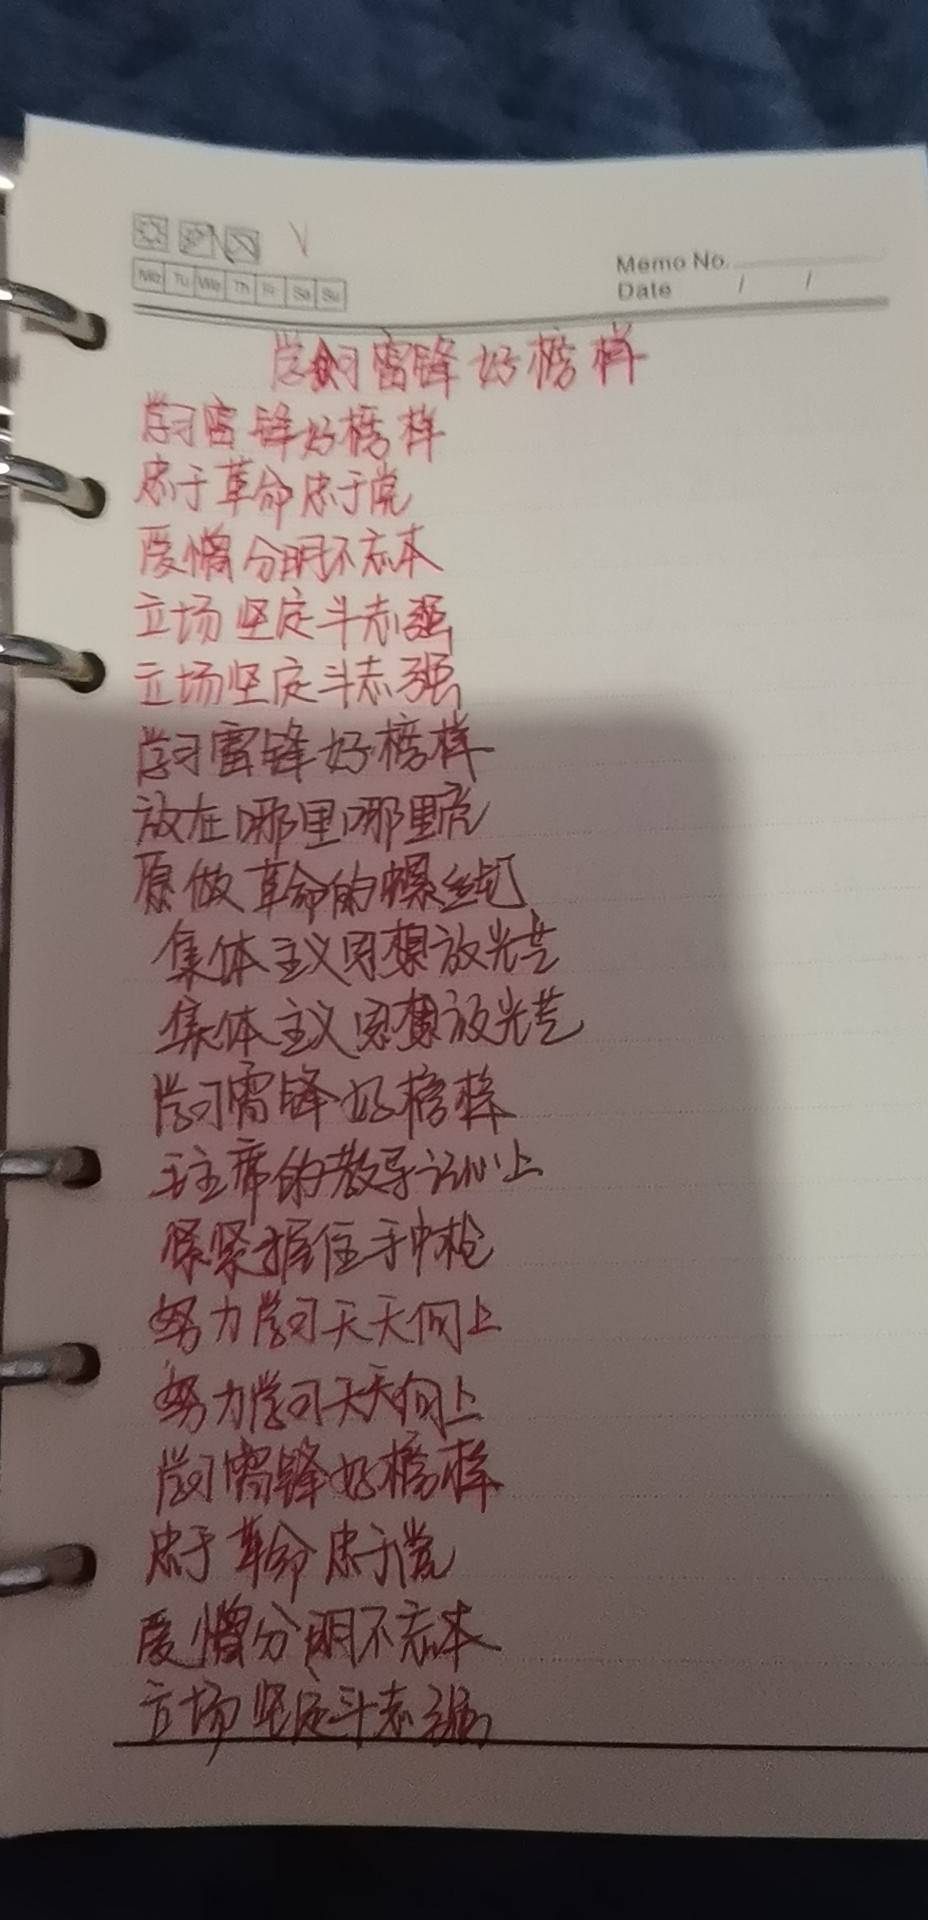 Memo No.
Mo Tu We Th Fr Sa Su
Date / /
学习雷锋好榜样
学习雷锋好榜样
忠于革命忠于党
爱憎分明不忘本
立场坚定斗志强
立场坚定斗志强
学习雷锋好榜样
放在哪里哪里亮
愿做革命的螺丝钉
集体主义思想放光芒
集体主义思想放光芒
学习雷锋好榜样
毛主席的教导记心上
紧紧握住手中枪
努力学习天天向上
努力学习天天向上
学习雷锋好榜样
忠于革命忠于党
爱憎分明不忘本
立场坚定斗志强